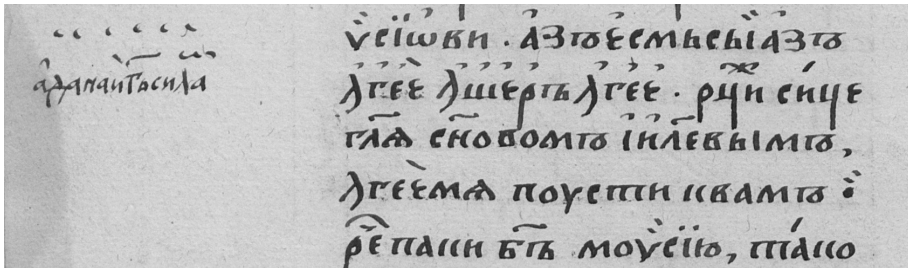 а҆данаи г҃ь сила
ѵ҆сїѡви . а҆зъ е҆смь сыї а҆зъ
Агее Ашеръ Агее . рци сице
гл҃ѧ сн҃овомъ і҆и҃левымъ,
Агее мѧ поусти к вамъ ï
рⷱ҇е паки бг҃ъ моѵ҆сїю, тако